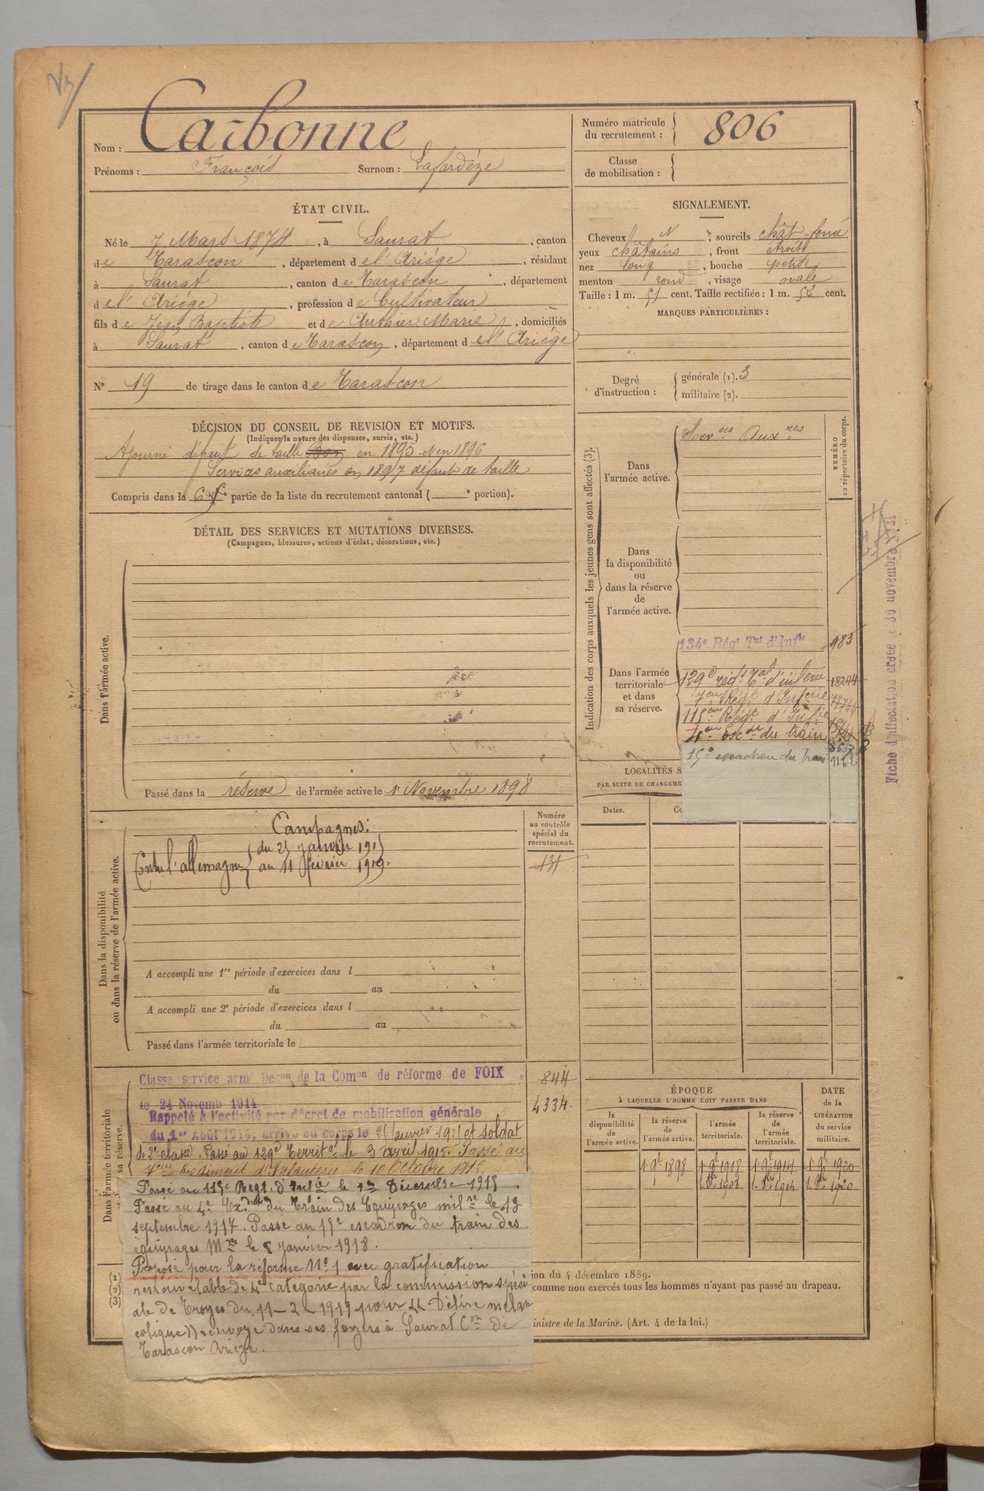 Nom : Carbonne
Prénoms : François Surnom : Lafardèze
Numéro matricule du recrutement : 806
Classe de mobilisation :
ÉTAT CIVIL.
Né le 7 Mars 1874, à Saurat, canton
de Tarascon, département de l'Ariège, résidant
à Saurat, canton de Tarascon, département
de l'Ariège, profession de Cultivateur
fils de Jean Baptiste et de Antonie Marie, domiciliés
à Saurat, canton de Tarascon, département de l'Ariège
N° 19 de tirage dans le canton de Tarascon
SIGNALEMENT.
Cheveux N ; sourcils chât-foncé
yeux châtains, front étroit
nez long, bouche petite
menton rond, visage ovale
Taille : 1 m. 51 cent. Taille rectifiée : 1 m. 52 cent.
MARQUES PARTICULIÈRES :
Degré d'instruction : générale (1). 3
militaire (2).
DÉCISION DU CONSEIL DE REVISION ET MOTIFS.
(Indiquer la nature des dispenses, sursis, etc.)
Ajourné défaut de taille Bon en 1895 et en 1896
Services auxiliaires en 1897 défaut de taille
Compris dans la 6e partie de la liste du recrutement cantonal ( e portion).
DÉTAIL DES SERVICES ET MUTATIONS DIVERSES.
(Campagnes, blessures, actions d'éclat, décorations, etc.)
Dans l'armée active.
Passé dans la réserve de l'armée active le 1er Novembre 1898
Indication des corps auxquels les jeunes gens sont affectés (3).
NUMÉRO au répertoire du corps.
Dans l'armée active.
Servces Auxres
Dans la disponibilité ou dans la réserve de l'armée active.
Dans l'armée territoriale et dans sa réserve.
134e Régt Tal d'Infie 983
129e régt Tal d'infie 18244
7eme Régt d'Inferie
115eme Régt d'Infie
4eme Escon du train
15e escadron du train
Fiche d'affectation créée le 30 novembre 1921
LOCALITÉS S
PAR SUITE DE CHANGEME
Dates.
Numéro au contrôle spécial du recrutement.
131
Dans la disponibilité ou dans la réserve de l'armée active.
Campagnes :
Contre l'allemagne du 25 janvier 1915
au 11 février 1919.
A accompli une 1re période d'exercices dans l
du au
A accompli une 2e période d'exercices dans l
du au
Passé dans l'armée territoriale le
Dans l'armée territoriale et dans sa réserve.
Classé service armé Décon de la Comon de réforme de FOIX 844
le 24 Novemb 1914 4334
Rappelé à l'activité par décret de mobilisation générale
du 1er Août 1914, arrivé au corps le 25 Janvier 1915 et soldat
de 2e classe. Passé au 129e Territal le 3 avril 1915. Passé au
7eme Régiment d'Infanterie le 10 Octobre 1915
Passé au 115e Régt d'Infie le 1er Décembre 1915
Passé au 4e Ex. du Train des Equipages milre le 13
septembre 1917. Passé au 15e escadron du train des
équipages Mre le 8 janvier 1918.
Proposé pour la réforme N° 1 avec gratification
renouvelable de 4e catégorie par la commission spéci
ale de Troyes du 11-2-1919 pour "Délire mélan
colique" renvoyé dans ses foyers à Saurat Con de
Tarascon Ariège.
ÉPOQUE
À LAQUELLE L'HOMME DOIT PASSER DANS
la disponibilité de l'armée active.
la réserve de l'armée active.
l'armée territoriale.
la réserve de l'armée territoriale.
DATE de la LIBÉRATION du service militaire.
1 9bre 1898
1 9bre 1908
1 9bre 1914
1 9bre 1920
(1)
(2)
(3)
ion du 4 décembre 1889.
comme non exercés tous les hommes n'ayant pas passé au drapeau.
inistre de la Marine. (Art. 4 de la loi.)